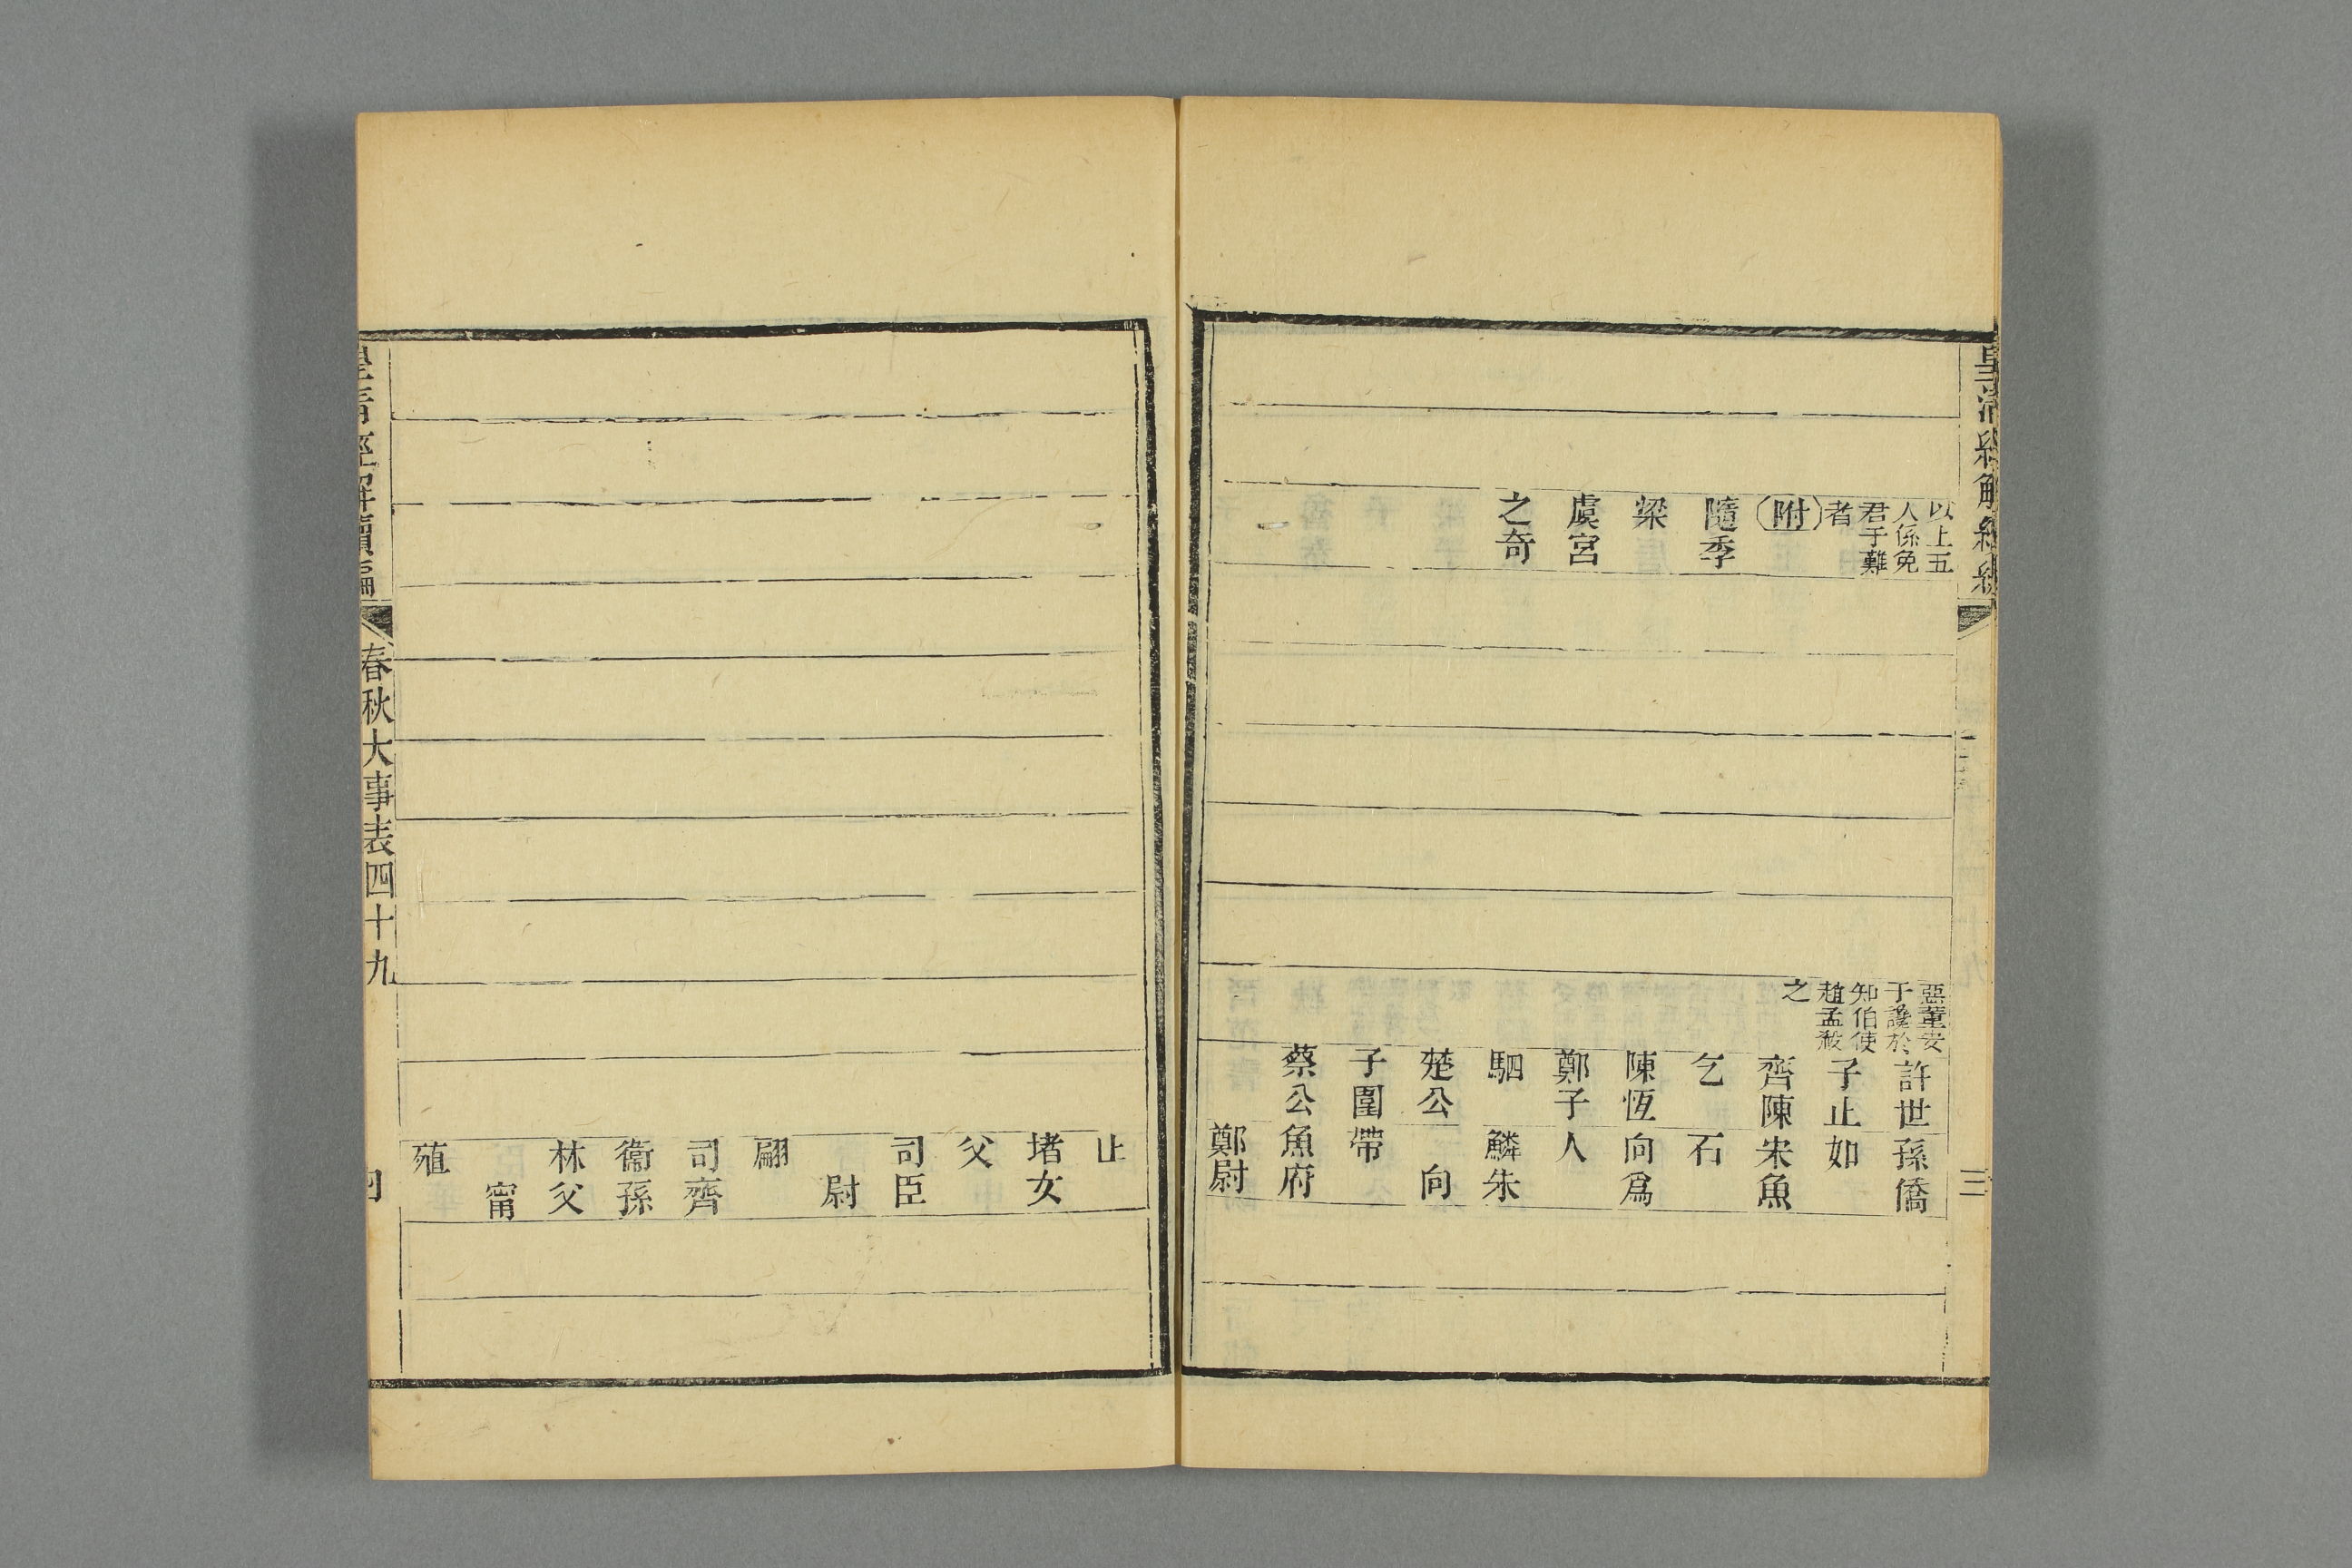 皇清經解續編
三
以上五
人係免
君于難
者
附
隨季
梁
虞宮
之奇
惡董安
于讒於
知伯使
趙孟殺
之
許世
子止
齊陳
乞
陳恆
鄭子
駟
楚公
子圍
蔡公
孫僑
如
宋魚
石
向爲
人
鱗朱
向
帶
魚府
鄭尉
止
堵女
父
司臣
尉
翩
司齊
衞孫
林父
甯
殖
皇清經解續編
春秋大事表四十九
四